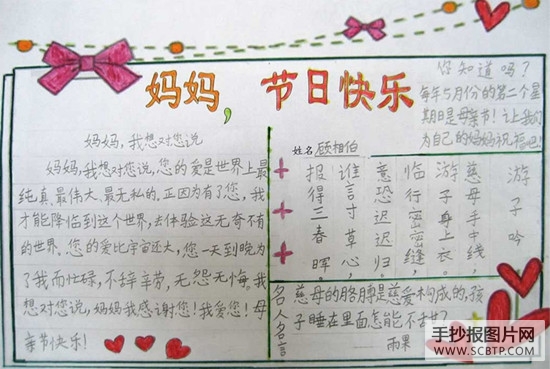 妈妈，节日快乐
你知道吗？
每年5月份的第二个星
期日是母亲节！让我们
为自己的妈妈祝福吧！
妈妈，我想对您说
妈妈，我想对您说，您的爱是世界上最
纯真、最伟大、最无私的。正因为有了您，我
才能降临到这个世界，去体验这无奇不有
的世界。您的爱比宇宙还大，您一天到晚为
了我而忙碌，不辞辛劳，无怨无悔。我
想对您说，妈妈我感谢您！我爱您！母
亲节快乐！
姓名 顾相伯
游子吟
慈母手中线，
游子身上衣。
临行密密缝，
意恐迟迟归。
谁言寸草心，
报得三春晖。
名人名言
慈母的胳膊是慈爱构成的，孩
子睡在里面怎能不甜？
雨果
手抄报图片网
WWW.SCBTP.COM